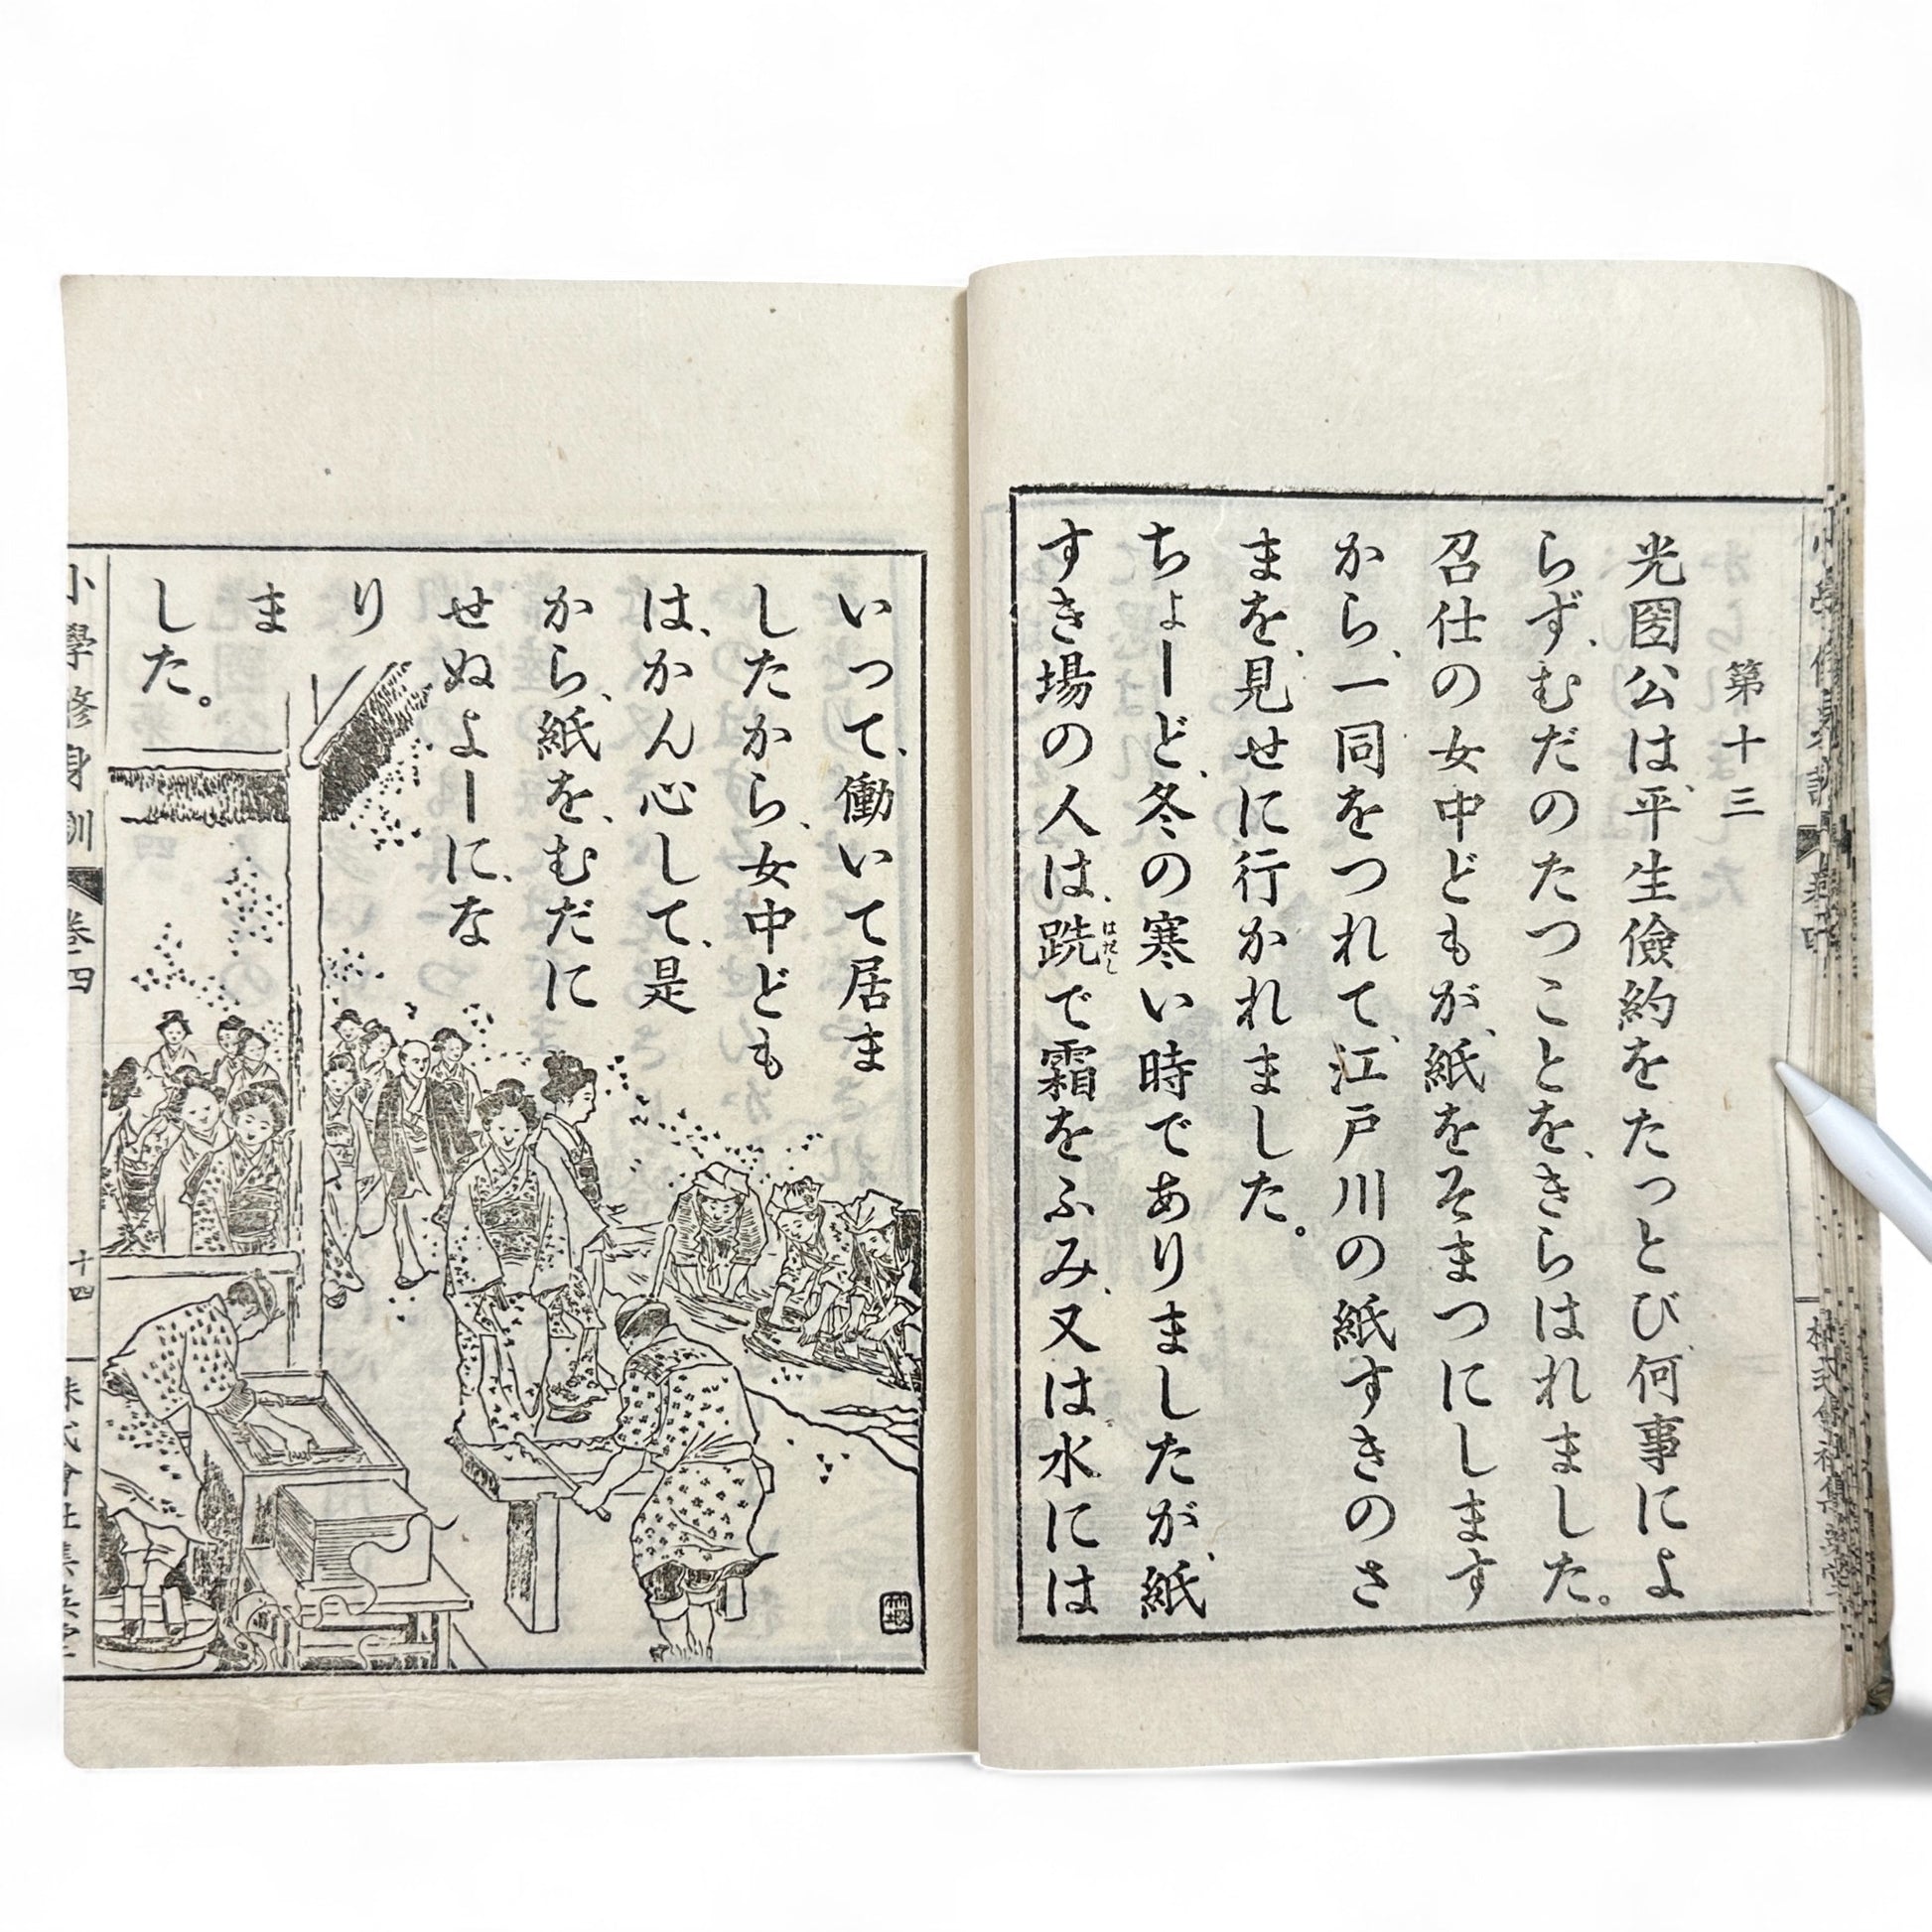 第十三
光圀公は、平生儉約をたっとび、何事によ
らず、むだのたつことを、きらはれました。
召仕の女中どもが、紙をそまつにします
から、一同をつれて、江戸川の紙すきのさ
まを、見せに行かれました。
ちょーど、冬の寒い時でありましたが、紙
すき場の人は、跣で霜をふみ、又は水には
はだし
いって、働いて居ま
したから、女中ども
は、かん心して、是
から、紙を、むだに
せぬよーに、な
り
ま
した。
小學修身訓
卷四
十四